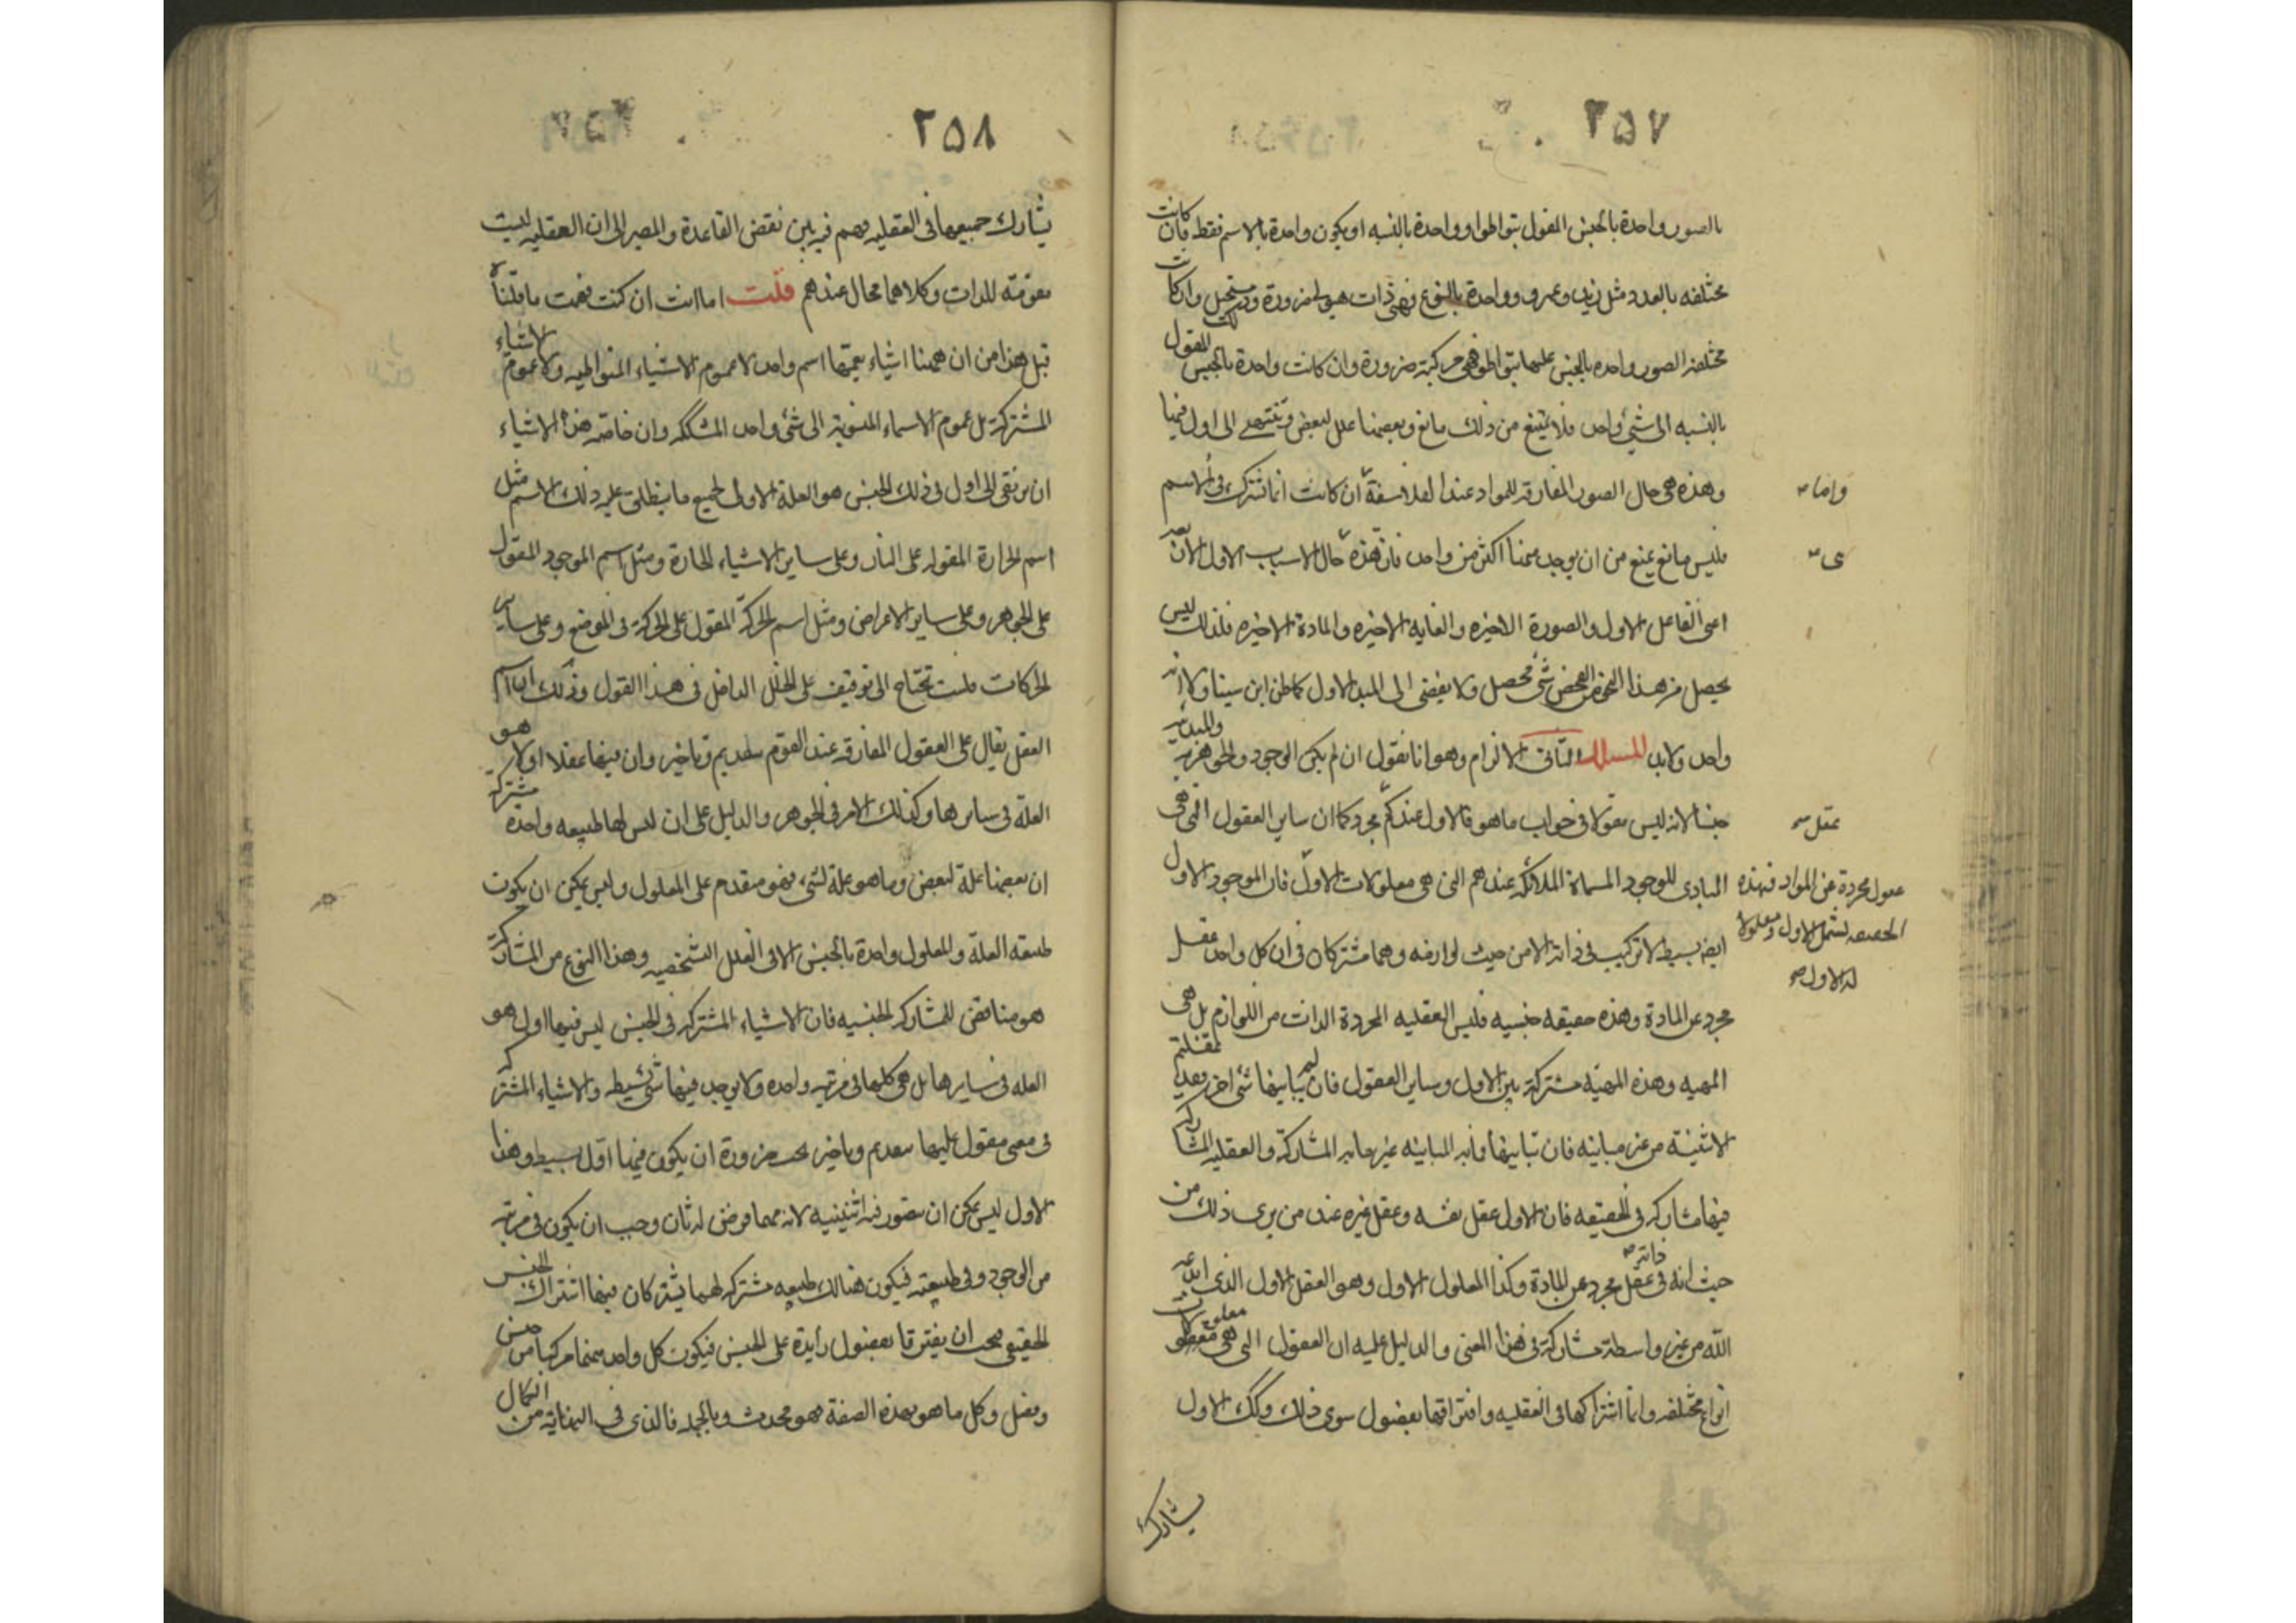 ٢٥٧
بالصور واحدة بالجنس المقول بتواطوا وواحدة بالنسبه او يكون واحدة بالاسم فقط فان كانت
مختلفه بالعدد مثل زيد وعمرو وواحدة بالنوع فهى ذات هيولى ضرورة وذلك مستحيل وان كانت
مختلفه الصور واحده بالجنس عليها بتواطو فهى مركبة ضرورة وان كانت واحدة بالجنس المقول
بالنسبه الى شئ واحد فلا يمتنع من ذلك مانع وبعضها علل لبعض وتنتهى الى اول فيها
وهذه هى حال الصور المفارقه للمواد عند الفلاسفة ان كانت انما تشترك فى الاسم
واما
فليس مانع يمنع من ان يوجد منها اكثر من واحد فان هذه حال الاسباب الاول الا
ى
اعنى الفاعل الاول والصورة الاخيره والغايه الاخيره والمادة الاخيره فلذلك ليس
يحصل من هذا الفحص شئ محصل ولا يفضى الى المبدا الاول كما ظن ابن سينا ولا انه
واحد ولابد المسلك الثانى الالزام وهو انا نقول ان لم يكن الوجود والجوهريه والمبدئيه
جنسا لانه ليس مقولا فى جواب ما هو فالاول عندكم مجرد كما ان ساير العقول التى هى
عقل
المبادى للوجود المسماة الملائكه عندهم التى هى معلولات الاول فان الموجود الاول
عقول مجردة عن المواد فهذه
الحقيقه تشمل الاول ومعلولا
له الاول
ايضا بسيط لا تركيب فى ذاته الا من حيث لوازمه وهما مشتركان فى ان كل واحد عقل
مجرد عن المادة وهذه حقيقه جنسيه فليس العقليه المجردة الذات من اللوازم بل هى
المهيه وهذه المهيّه مشتركة بين الاول وساير العقول فان لم يباينها شئ اخر فقد عقلتم
الاثنينة من غير مباينه فان تباينها فما به المباينه غير ما به المشاركة والعقليه المشاركه
فيها مشاركه فى الحقيقه فان الاول عقل نفسه وعقل غيره عند من يرى ذلك من
حيث انه فى ذاته عقل مجرد عن المادة وكذا المعلول الاول وهو العقل الاول الذى ابدعه
الله من غير واسطة مشاركة فى هذا المعنى والدليل عليه ان العقول التى هى معلولات
انواع مختلفه وانما اشتراكها فى العقليه وافتراقها بفصول سوى ذلك وكك الاول
يشارك
٢٥٨
يشارك جميعها فى العقليه فهم فيه بين نقض القاعدة والمصير الى ان العقليه ليست
مقومة للذات وكلاهما محال عندهم قلت اما انت ان كنت فهمت ما قلناه
قبل هذا من ان ههنا اشياء يعمّها اسم واحد لا عموم الاشياء المتواطيه ولا عموم الاشياء
المشتركة بل عموم الاسماء المنسوبة الى شئ واحد المشككه وان خاصه هذه الاشياء
ان ترتقى الى اول فى ذلك الجنس هو العلة الاولى لجميع ما ينطلق عليه ذلك الاسم مثل
اسم الحرارة المقوله على النار وعلى ساير الاشياء الحارة ومثل اسم الموجود المقول
على الجوهر وعلى ساير الاعراض ومثل اسم الحركة المقول على الحركة فى الموضع وعلى ساير
الحركات فلست تحتاج الى توقيف على الخلل الداخل فى هذا القول وذلك ان اسم
العقل يقال على العقول المفارقه عند القوم بتقديم وتاخير وان فيها عقلا اولا هو
العلة فى سايرها وكذلك الامر فى الجوهر والدليل على ان ليس لها طبيعه واحده مشتركه
ان بعضها علة لبعض وما هو علة لشئ فهو متقدم على المعلول وليس يمكن ان يكون
طبيعه العلة والمعلول واحدة بالجنس الا فى العلل الشخصيه وهذا النوع من المشاركة
هو مناقض للمشاركه الجنسيه فان الاشياء المشتركه فى الجنس ليس فيها اول هو
العله فى سايرها بل هى كلها فى مرتبه واحده ولا يوجد فيها شئ بسيط والاشياء المشتركه
فى معنى مقول عليها بتقديم وتاخير يجب ضرورة ان يكون فيها اول بسيط وهذا
الاول ليس يمكن ان يتصور فيه اثنينيه لانه مهما فرض له ثان وجب ان يكون فى مرتبته
من الوجود وفى طبيعته فيكون هنالك طبيعه مشتركه لهما يشتركان فيها اشتراك الجنس
الحقيقى فيجب ان يفترقا بفصول زايدة على الجنس فيكون كل واحد منهما مركبا من جنس
وفصل وكل ما هو بهذه الصفة فهو محدث وبالجمله فالذى فى النهاية من الكمال